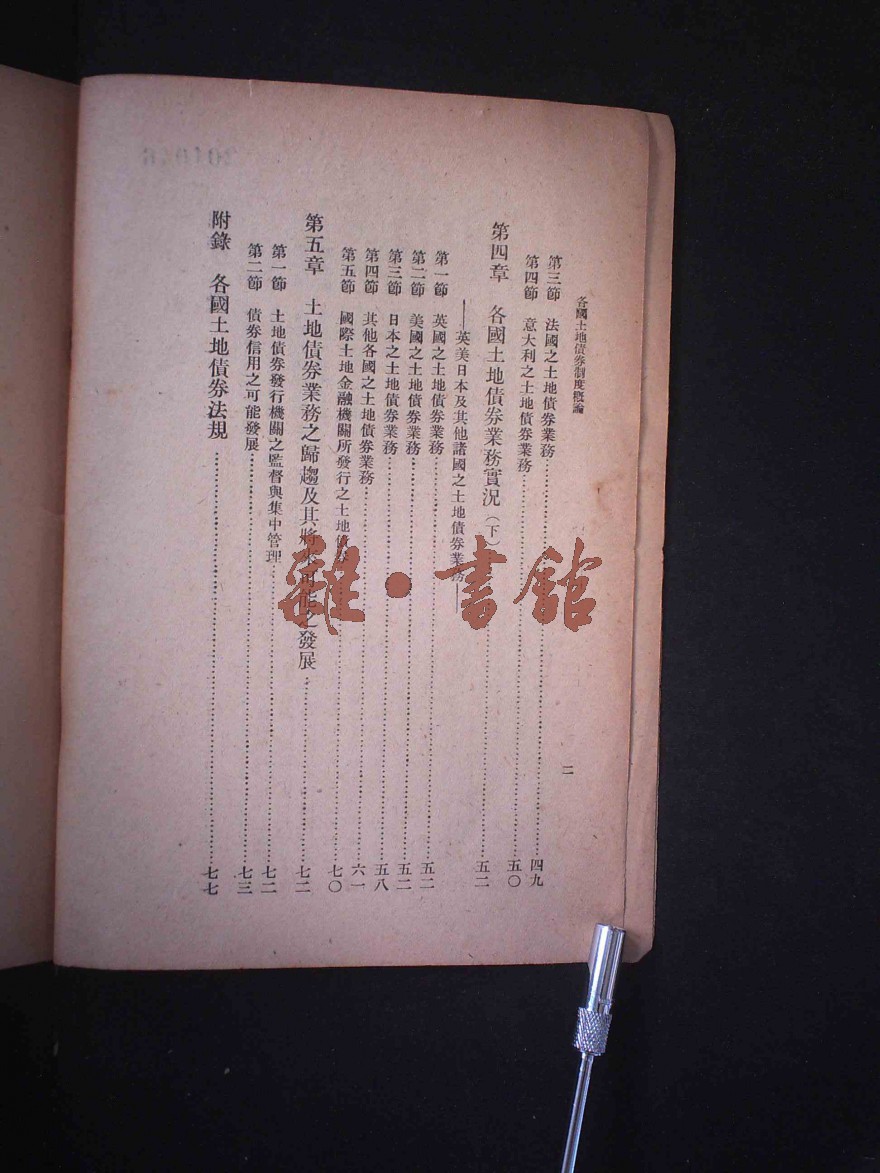 各國土地債券制度概論
二
第三節 法國之土地債券業務……四九
第四節 意大利之土地債券業務……五〇
第四章 各國土地債券業務實況(下)……五二
——英美日本及其他諸國之土地債券業務——
第一節 英國之土地債券業務……五二
第二節 美國之土地債券業務……五二
第三節 日本之土地債券業務……五八
第四節 其他各國之土地債券業務……六一
第五節 國際土地金融機關所發行之土地債券……七〇
第五章 土地債券業務之歸趨及其將來可能之發展……七二
第一節 土地債券發行機關之監督與集中管理……七二
第二節 債券信用之可能發展……七三
附錄 各國土地債券法規……七七
雜·書館